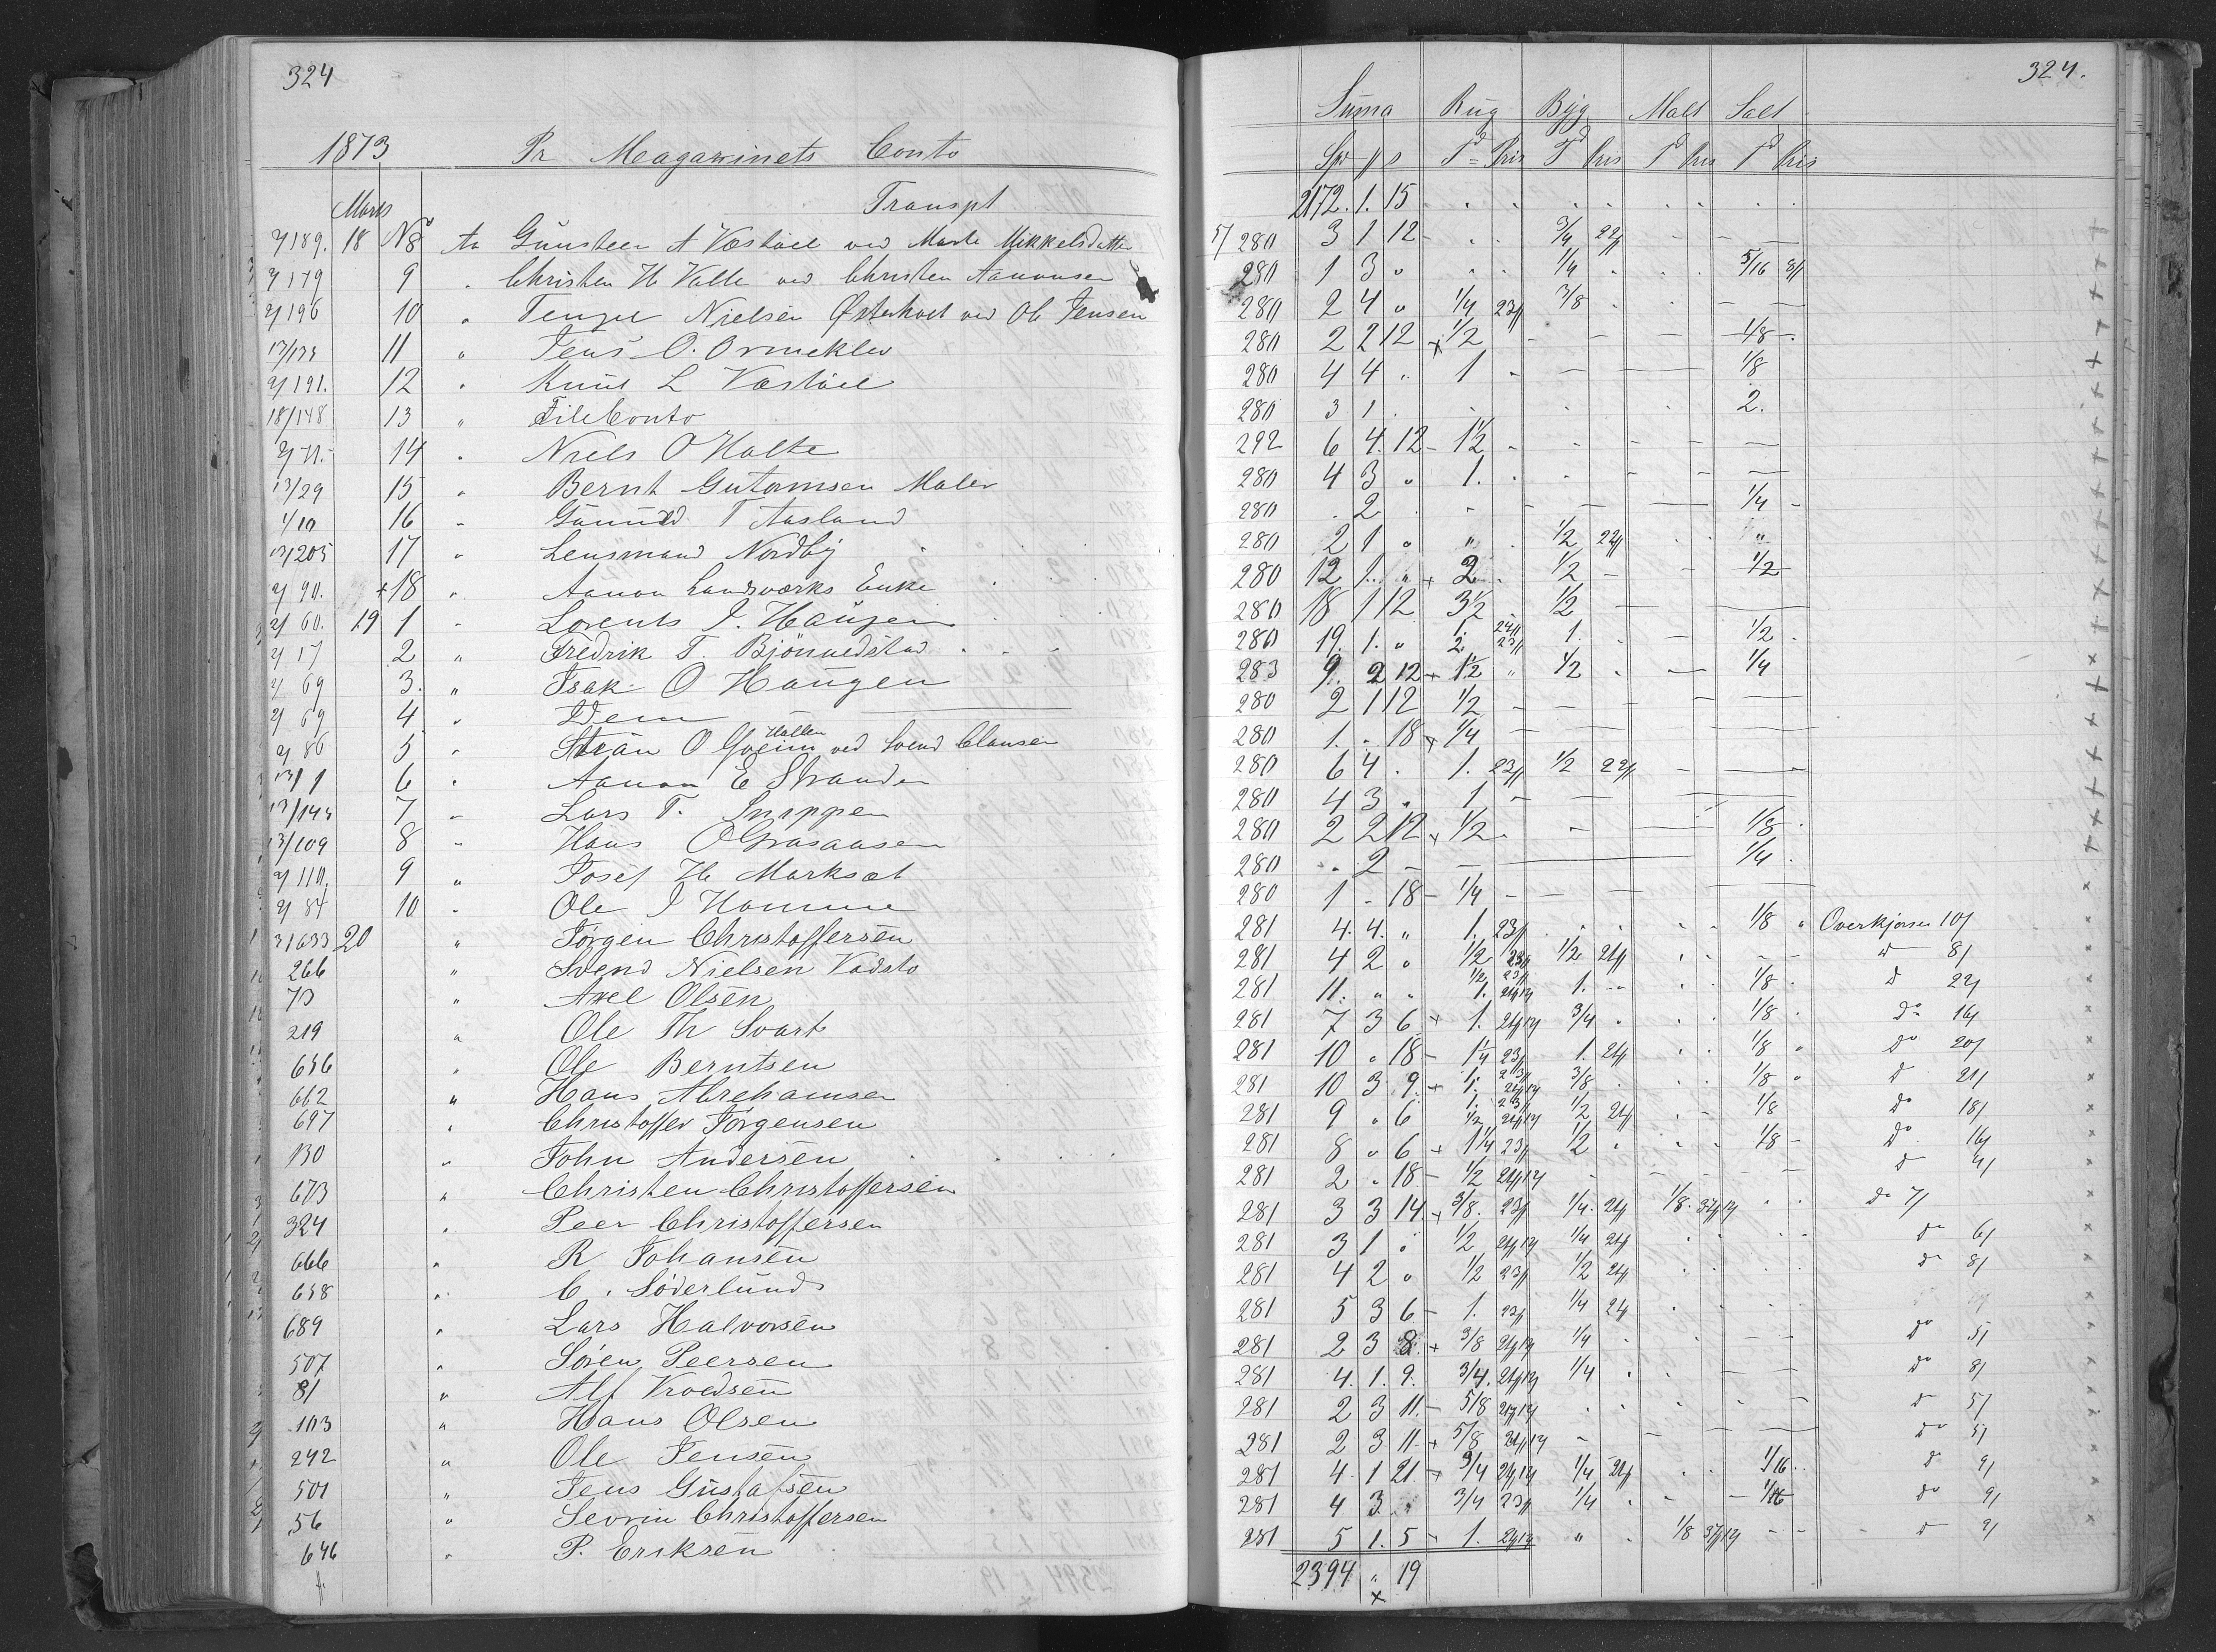 324
1873 Pr Meagazinets Conto
Marts Transpt
2/189. 18 No 8 An Gunsteen A Vastöel ved Marte Mikkelsdatter
2/179 9 " Christen H Valle ved Christen Aanonsen
2/196 10 " Tenge Nielsen Østerholt ved Ole Jensen
13/135 11 " Jens O. Ormeklev
2/191. 12 " Knut L Vastöel
18/148 13 " File Conto
14 " Niels O Holte
13/29 15 " Bernt Gutormsen Maler
1/10 16 " Gunuld T Aasland
13/205 17 " Lensmand Nordby
2/90. +18 " Aanon Landsværks Enke
2/60. 19 1 " Lorents J. Haugen
2/17 2 " Fredrik T. Bjönnedstad
2/69 3. " Isak O Haugen
2/69 4 " Idem
2/86 5 " Stian O Gveim Hallen ved Svend Clausen
13/1 6 " Aanon E Stranden
13/145 7 " Lars T. Snippen
13/109 8 " Hans O Grasaasen
2/110. 9 " Josef H Marksæt
2/84 10 " Ole J Homme
3/633 20 " Jörgen Christoffersen
266 " Svend Nielsen Vadsto
73 " Axel Olsen
219 " Ole Th Svart
656 " Ole Berntsen
662 " Hans Abrehamsen
697 " Christoffer Jörgensen
130 " John Andersen
673 " Christen Christoffersen
324 " Peer Christoffersen
666 " R Johansen
658 " C. Söderlund
689 " Lars Halvorsen
507 " Sören Peersen
81 " Alf Kroedsen
103 " Hans Olsen
242 " Ole Jensen
501 " Jens Gustafsen
56 " Severin Christoffersen
646 " P. Eriksen
324.
Suma Rug Byg Malt Salt
Spd # s Td Pris Td Pris Td Pris Td Pris
2172. 1. 15
280 3 1 12 3/4 22#
280 1 3 " 1/4 5/16 8#
280 2 4 " 1/4 23# 3/8
280 2 2 12 + 1/2 1/8
280 4 4 1 1/8
280 3 1 2.
292 6 4. 12 1 1/2
280 4 3 " 1.
280 . 2 1/4
280 2 1 " " 1/2 22# "
280 12 1. " + 2 1/2 1/2
280 18 1 12 3 1/2 1/2
280 19. 1. " 1. 24# 2. 23# 1. 1/2
283 9. 2 12 + 1 1/2 " 1/2 1/4
280 2 1 12 1/2
280 1. . 18 + 1/4
280 6 4 . 1. 23# 1/2 22#
280 4 3 " 1
280 2 2 12 + 1/2 1/8
280 . 2 1/4
280 1 - 18 1/4
281 4. 4. " 1. 23# 1/8 " Overkjörsel 10/
281 4 2 " 1/2 23# 1/2 21# d 8/
281 11. " " 1/2 23# 1. 21#12 1. 1/8 d 22/
281 7 3 6 + 1. 21#12 3/4 1/8 do 14/
281 10 " 18 1 1/4 23# 1. 21# 1/8 do 20/
281 10 3 9. + 1. 23# 1. 21#12 3/8 1/8 d 21/
281 9 " 6 1. 23# 1/2 21#12 1/2 21# 1/8 do 18/
281 8 " 6 + 1 1/4 23# 1/2 1/8 do 16/
281 2 " 18 1/2 21#12 d 4/
281 3 3 14. + 3/8. 23# 1/4 21# 1/8. 37#12 do 7/
281 3 1 " 1/2 21#12 1/4 21# do 6/
281 4 2 " 1/2 23# 1/2 21# do 8/
281 5 3 6 1. 23# 1/4 21#
281 2 3 8. + 3/8 21#12 1/4 do 5/
281 4. 1. 9. 3/4. 21#12 1/4 do 8/
281 2 3 11. 5/8 21#12 d 5/
281 2 3 11 + 5/8 21#12 do 5/
281 4 1 21 + 3/4 21#12 1/4 21# 1/16 d 9/
281 4 3. " 3/4 23# 1/4 1/16 do 9/
281 5 1. 5 1. 21#12 " 1/8 37#12 d 9/
2394 " 19